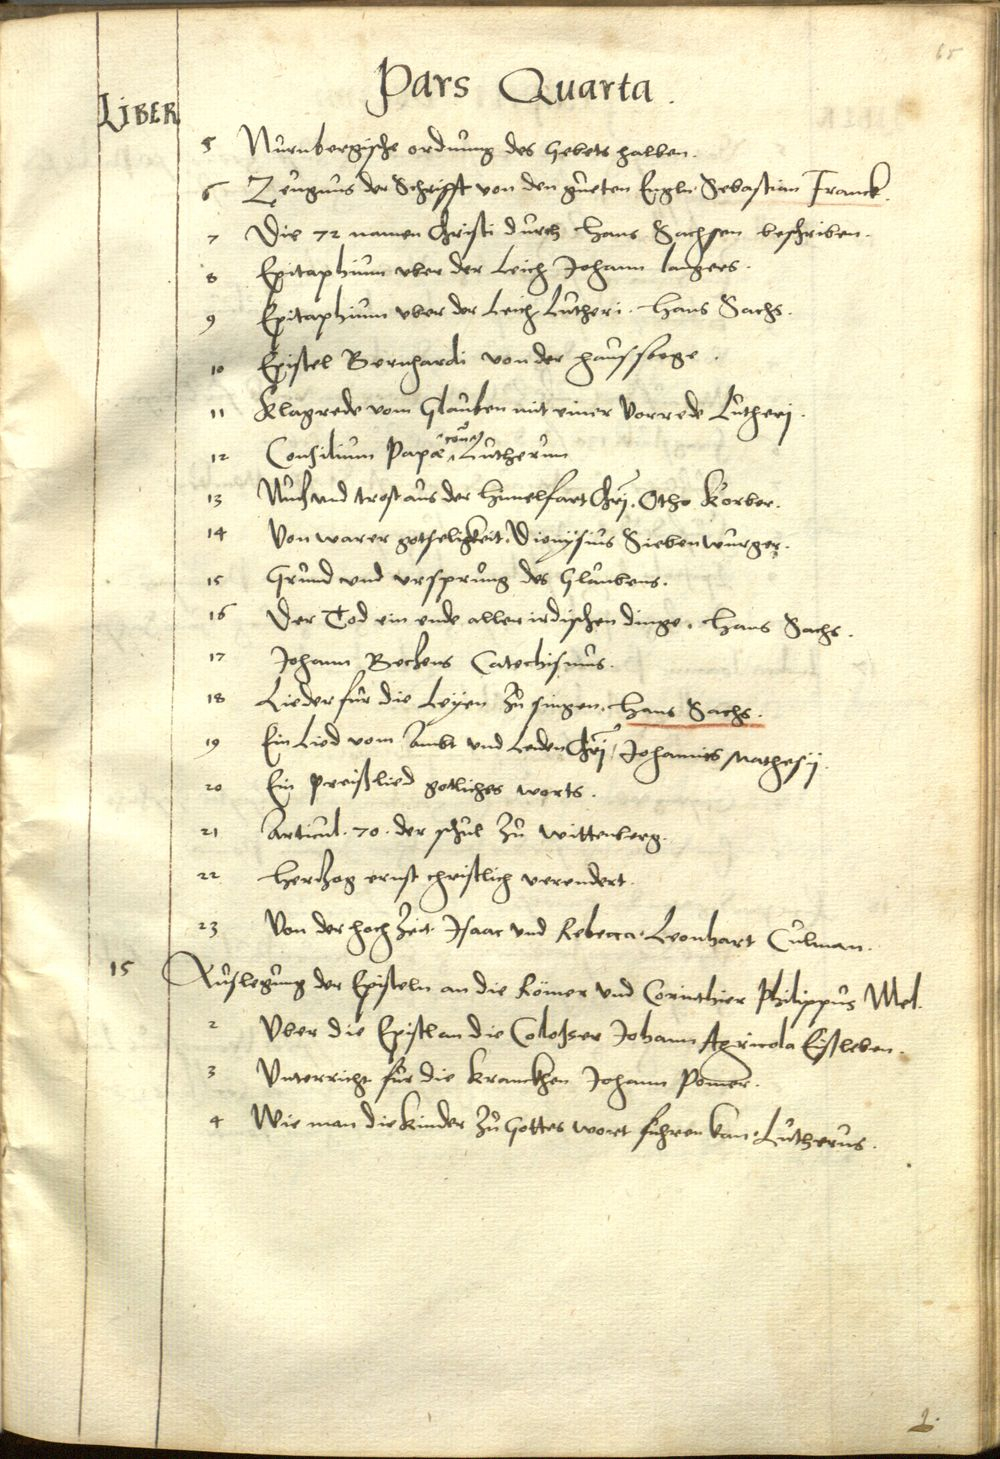 65
Pars Quarta.
LIBER
5 Nurnbergische ordnung des Gebets halben.
6 Zeugnus der Schrifft von den gueten Engln. Sebastian Franck.
7 Die 72 namen Christi durch Hans Sachsen beschriben.
8 Epitaphium vber der Leich Johann Langers.
9 Epitaphium vber der Leich Lutheri. Hans Sachs.
10 Epistel Bernhardi von der haussorge.
11 Klagrede vom Glauben mit einer Vorrede Lutherj.
12 Consilium Papae cont. Lutherum
13 Nutz vnd trost aus der Himelfart Chrj. Otho Körber.
14 Von warer gotseligkeit. Dionysius Siebenwurger.
15 Grund vnd vrsprung des Glaubens.
16 Der Tod ein ende aller irdischen dinge. Hans Sachs.
17 Johann Beckens Catechismus.
18 Lieder für die Leyen zu singen. Hans Sachs.
19 Ein Lied vom Ambt vnd Leiden Chrj, Johannis Mathesij.
20 Ein preißlied gotliches worts.
21 Articul. 70. der schul zu wittenberg.
22 Hertzog ernst christlich verendert.
23 Von der hochzeit Isaac vnd Rebecca. Leonhart Culman.
15 Auslegung der Episteln an die Römer vnd Corinthier Philippus Mel.
2 Vber die Epistl an die Colosser Johann Agricola Eisleben.
3 Vnterricht für die krancken Johann Pomer.
4 Wie man die kinder zu Gottes wort fuhren kan. Lutherus.